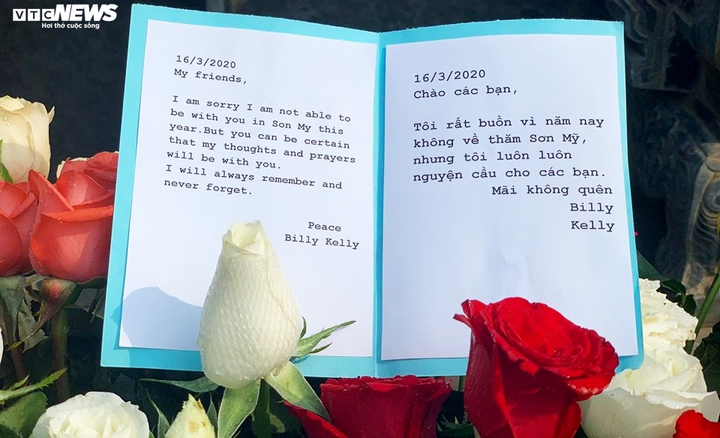 VTC NEWS
Hơi thở cuộc sống
16/3/2020
My friends,
I am sorry I am not able to
be with you in Son My this
year.But you can be certain
that my thoughts and prayers
will be with you.
I will always remember and
never forget.
Peace
Billy Kelly
16/3/2020
Chào các bạn,
Tôi rất buồn vì năm nay
không về thăm Sơn Mỹ,
nhưng tôi luôn luôn
nguyện cầu cho các bạn.
Mãi không quên
Billy
Kelly